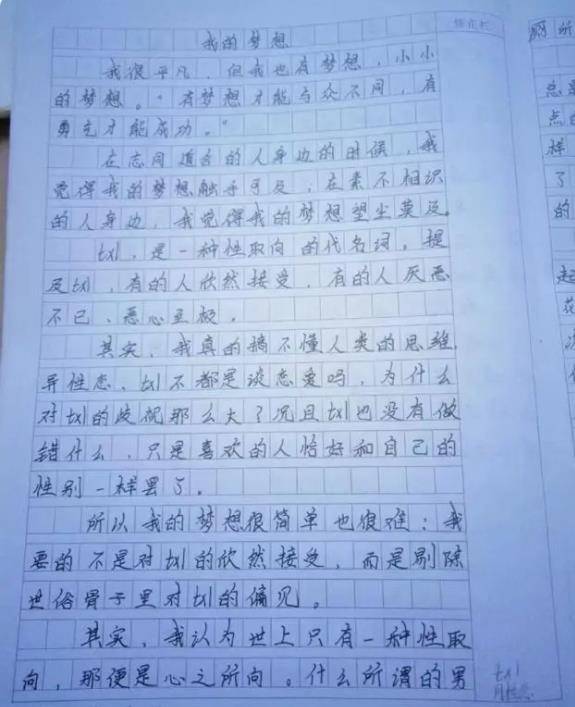 我的梦想
我很平凡，但我也有梦想，小小
的梦想。“有梦想才能与众不同，有
勇气才能成功。”
在志同道合的人身边的时候，我
觉得我的梦想触手可及，在素不相识
的人身边，我觉得我的梦想望尘莫及。
txl，是一种性取向的代名词。提
及txl，有的人欣然接受，有的人厌恶
不已、恶心至极。
其实，我真的搞不懂人类的思维，
异性恋、txl不都是谈恋爱吗，为什么
对txl的歧视那么大？况且txl也没有做
错什么，只是喜欢的人恰好和自己的
性别一样罢了。
所以我的梦想很简单也很难：我
要的不是对txl的欣然接受，而是剔除
世俗骨子里对txl的偏见。
其实，我认为世上只有一种性取
向，那便是心之所向。什么所谓的男
txl
同性恋
厕所
点
样
了
的
起
花